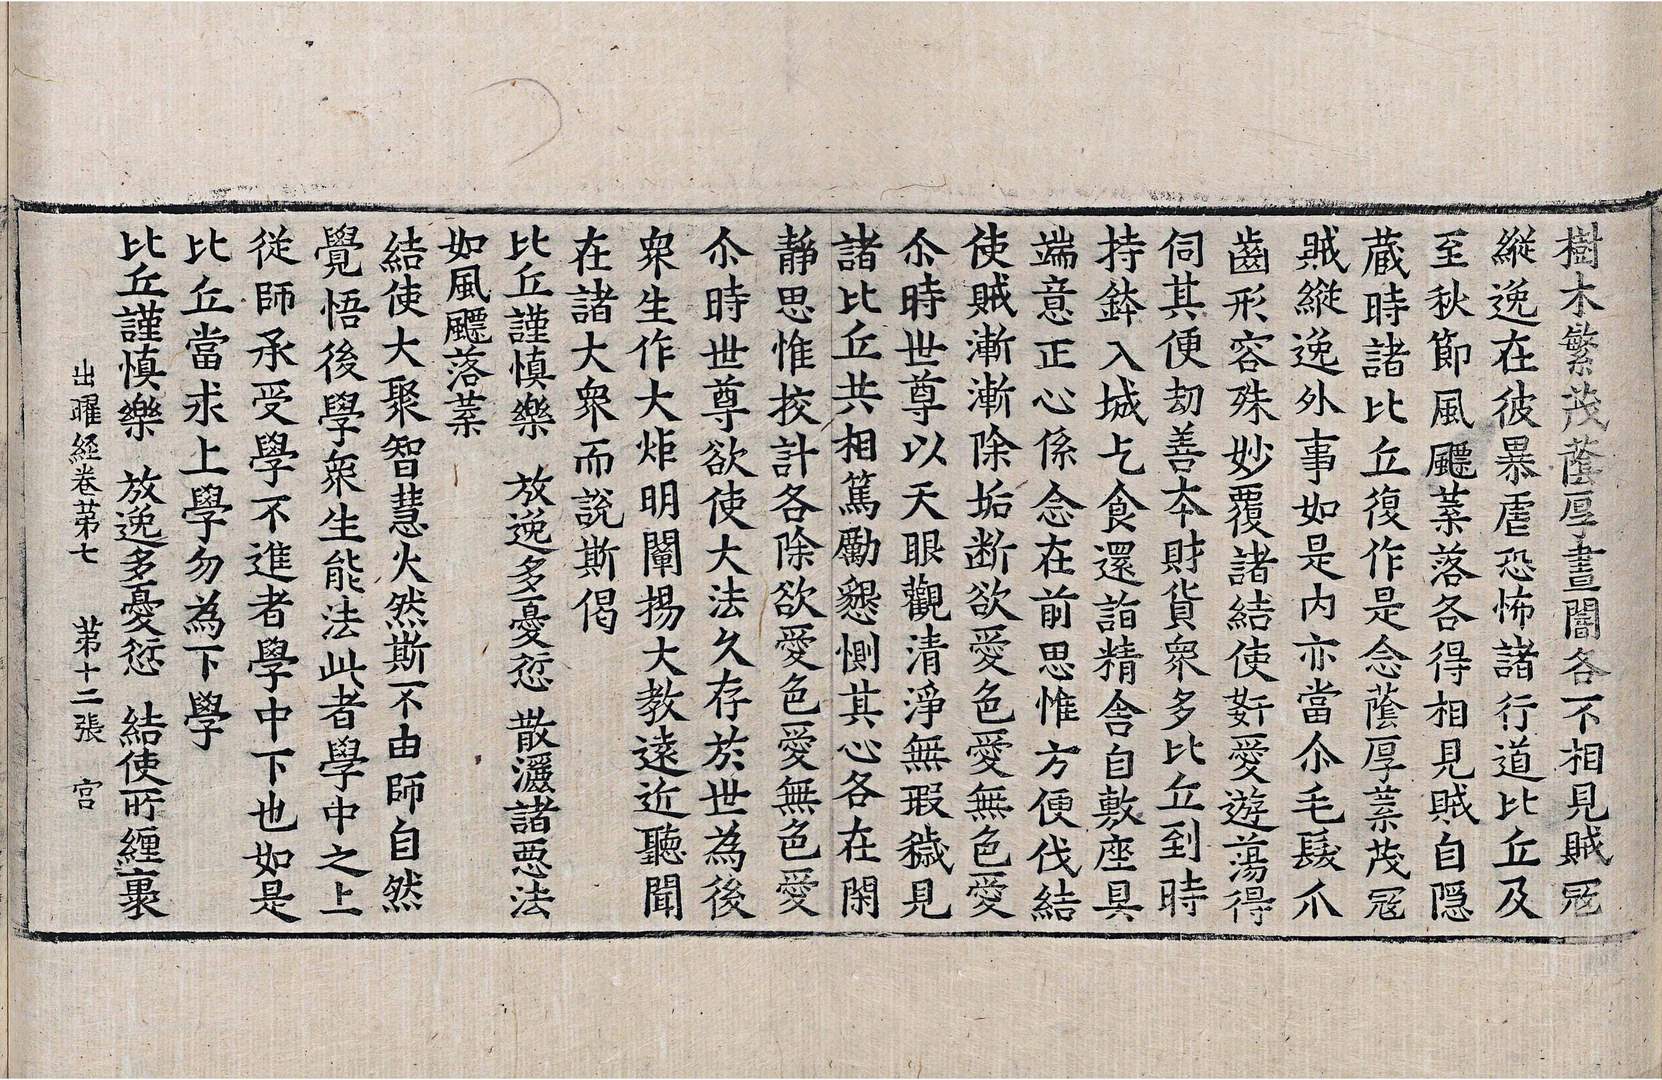 樹木繁茂蔭厚晝闇各不相見賊冦
縱逸在彼暴虐恐怖諸行道比丘及
至秋節風飄葉落各得相見賊自隱
藏時諸比丘復作是念蔭厚葉茂冦
賊縱逸外事如是内亦當尒毛髮爪
齒形容殊妙覆諸結使姧愛遊蕩得
伺其便刧善本財貨衆多比丘到時
持鉢入城乞食還詣精舍自敷座具
端意正心係念在前思惟方便伐結
使賊漸漸除垢断欲愛色愛無色愛
尒時世尊以天眼觀清淨無瑕穢見
諸比丘共相篤勵懇惻其心各在閑
静思惟挍計各除欲愛色愛無色愛
尒時世尊欲使大法久存於世為後
衆生作大炬明闡揚大教遠近聽聞
在諸大衆而說斯偈
比丘謹慎樂　放逸多憂愆　散灑諸惡法
如風飄落葉
結使大聚智慧火然斯不由師自然
覺悟後學衆生能法此者學中之上
從師承受學不進者學中下也如是
比丘當求上學勿為下學
比丘謹慎樂　放逸多憂愆　結使所纏裹
出曜經卷第七　第十二張　宫